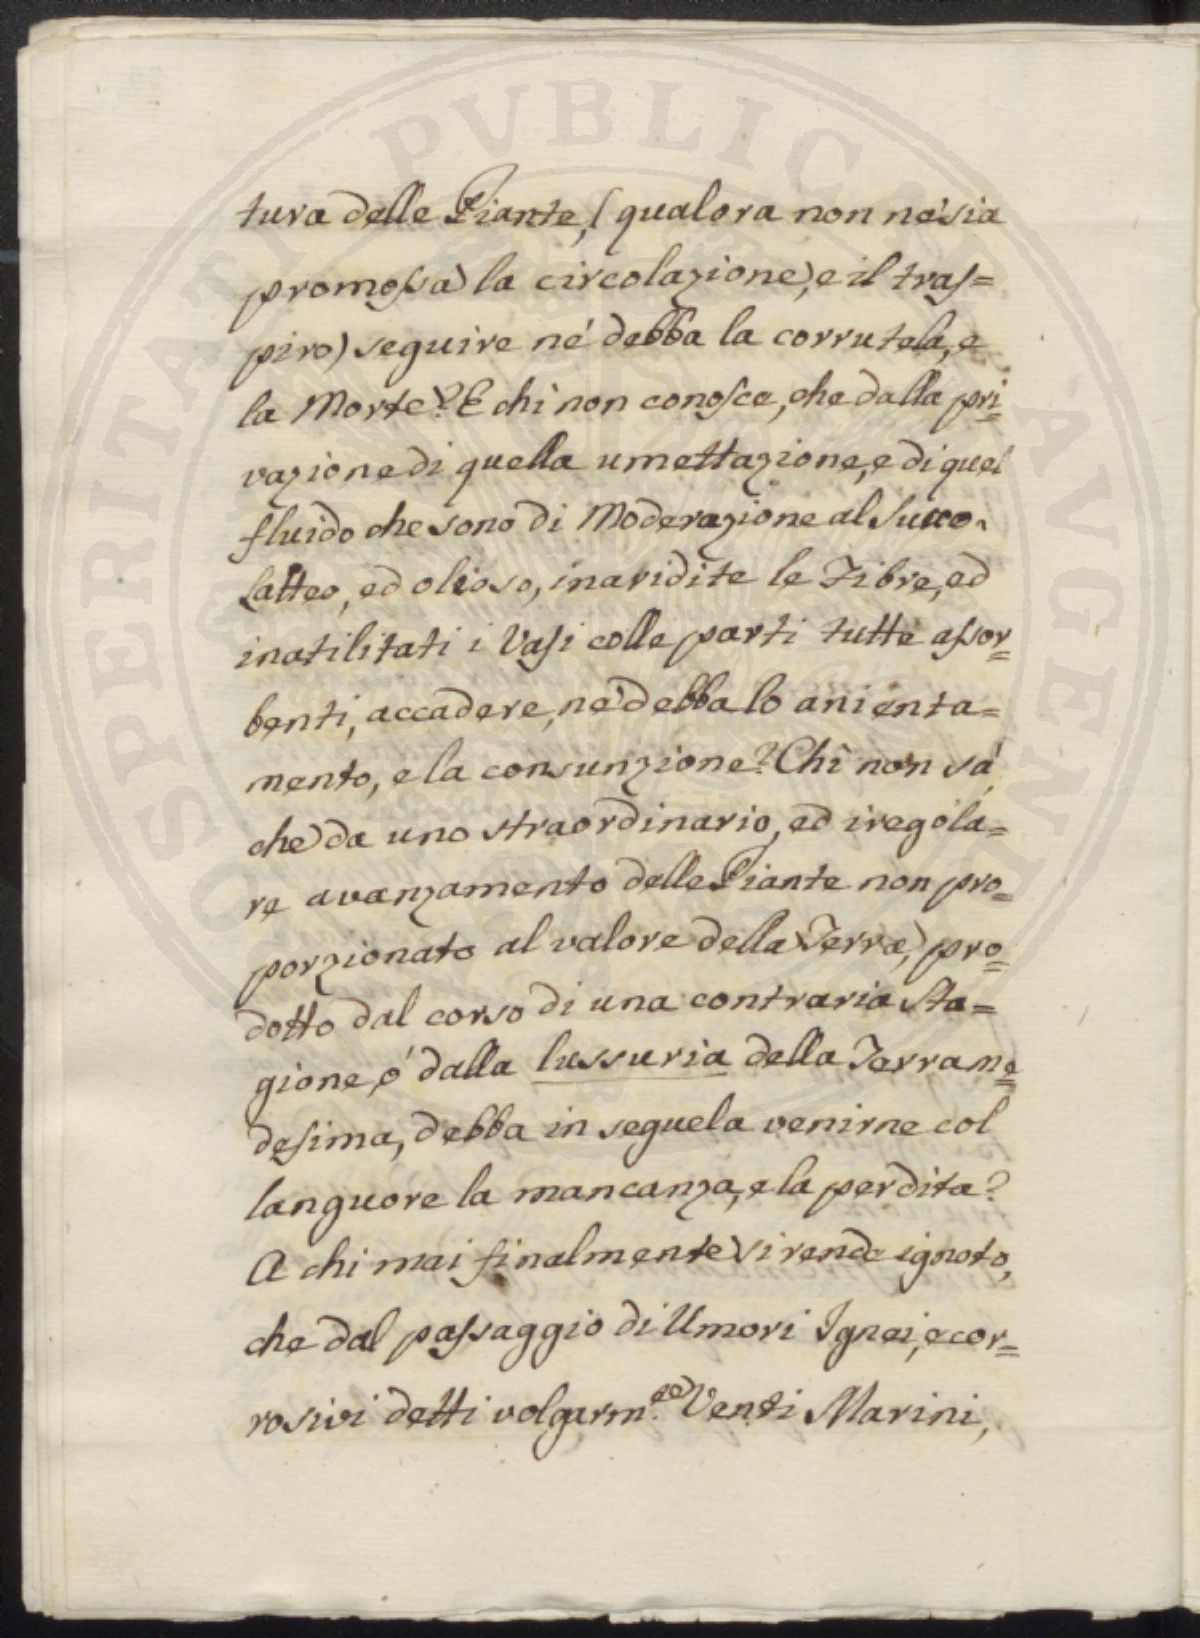 tura delle Piante, (qualora non ne sia
promossa la circolazione, e il tras=
piro) seguire né debba la corrutela, e
la Morte? E chi non conosce, che dalla pri=
vazione di quella umettazione, e di quel
fluido che sono di Moderazione al Succo
Latteo, ed olioso, inaridite le Fibre, ed
inatilitati i Vasi colle parti tutte assor=
benti, accadere, né debba lo anienta=
mento, e la consunzione? Chi non sá
che da uno straordinario, ed iregola=
re avanzamento delle Piante non pro=
porzionato al valore della Terra, pro=
dotto dal corso di una contraria Sta=
gione, ó dalla lussuria della Terra me=
desima, debba in seguela venirne col
languore la mancanza, e la perdita?
A chi mai finalmente si rende ignoto,
che dal passaggio di Umori Ignei, e cor=
rosivi detti volgarm.te Venti Marini,
SOSPERITATI PVBLICAE AVGENDAE